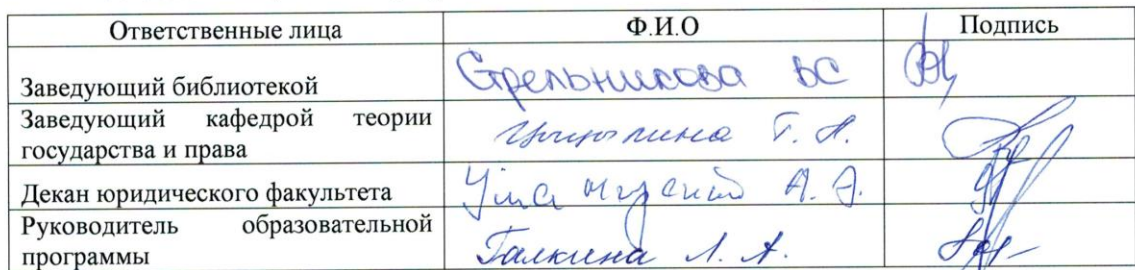 Ответственные лица Ф.И.О Подпись
Заведующий библиотекой Стрельникова ВС
Заведующий кафедрой теории
государства и права Т. Н.
Декан юридического факультета А. Э.
Руководитель образовательной
программы Галкина Л. А.